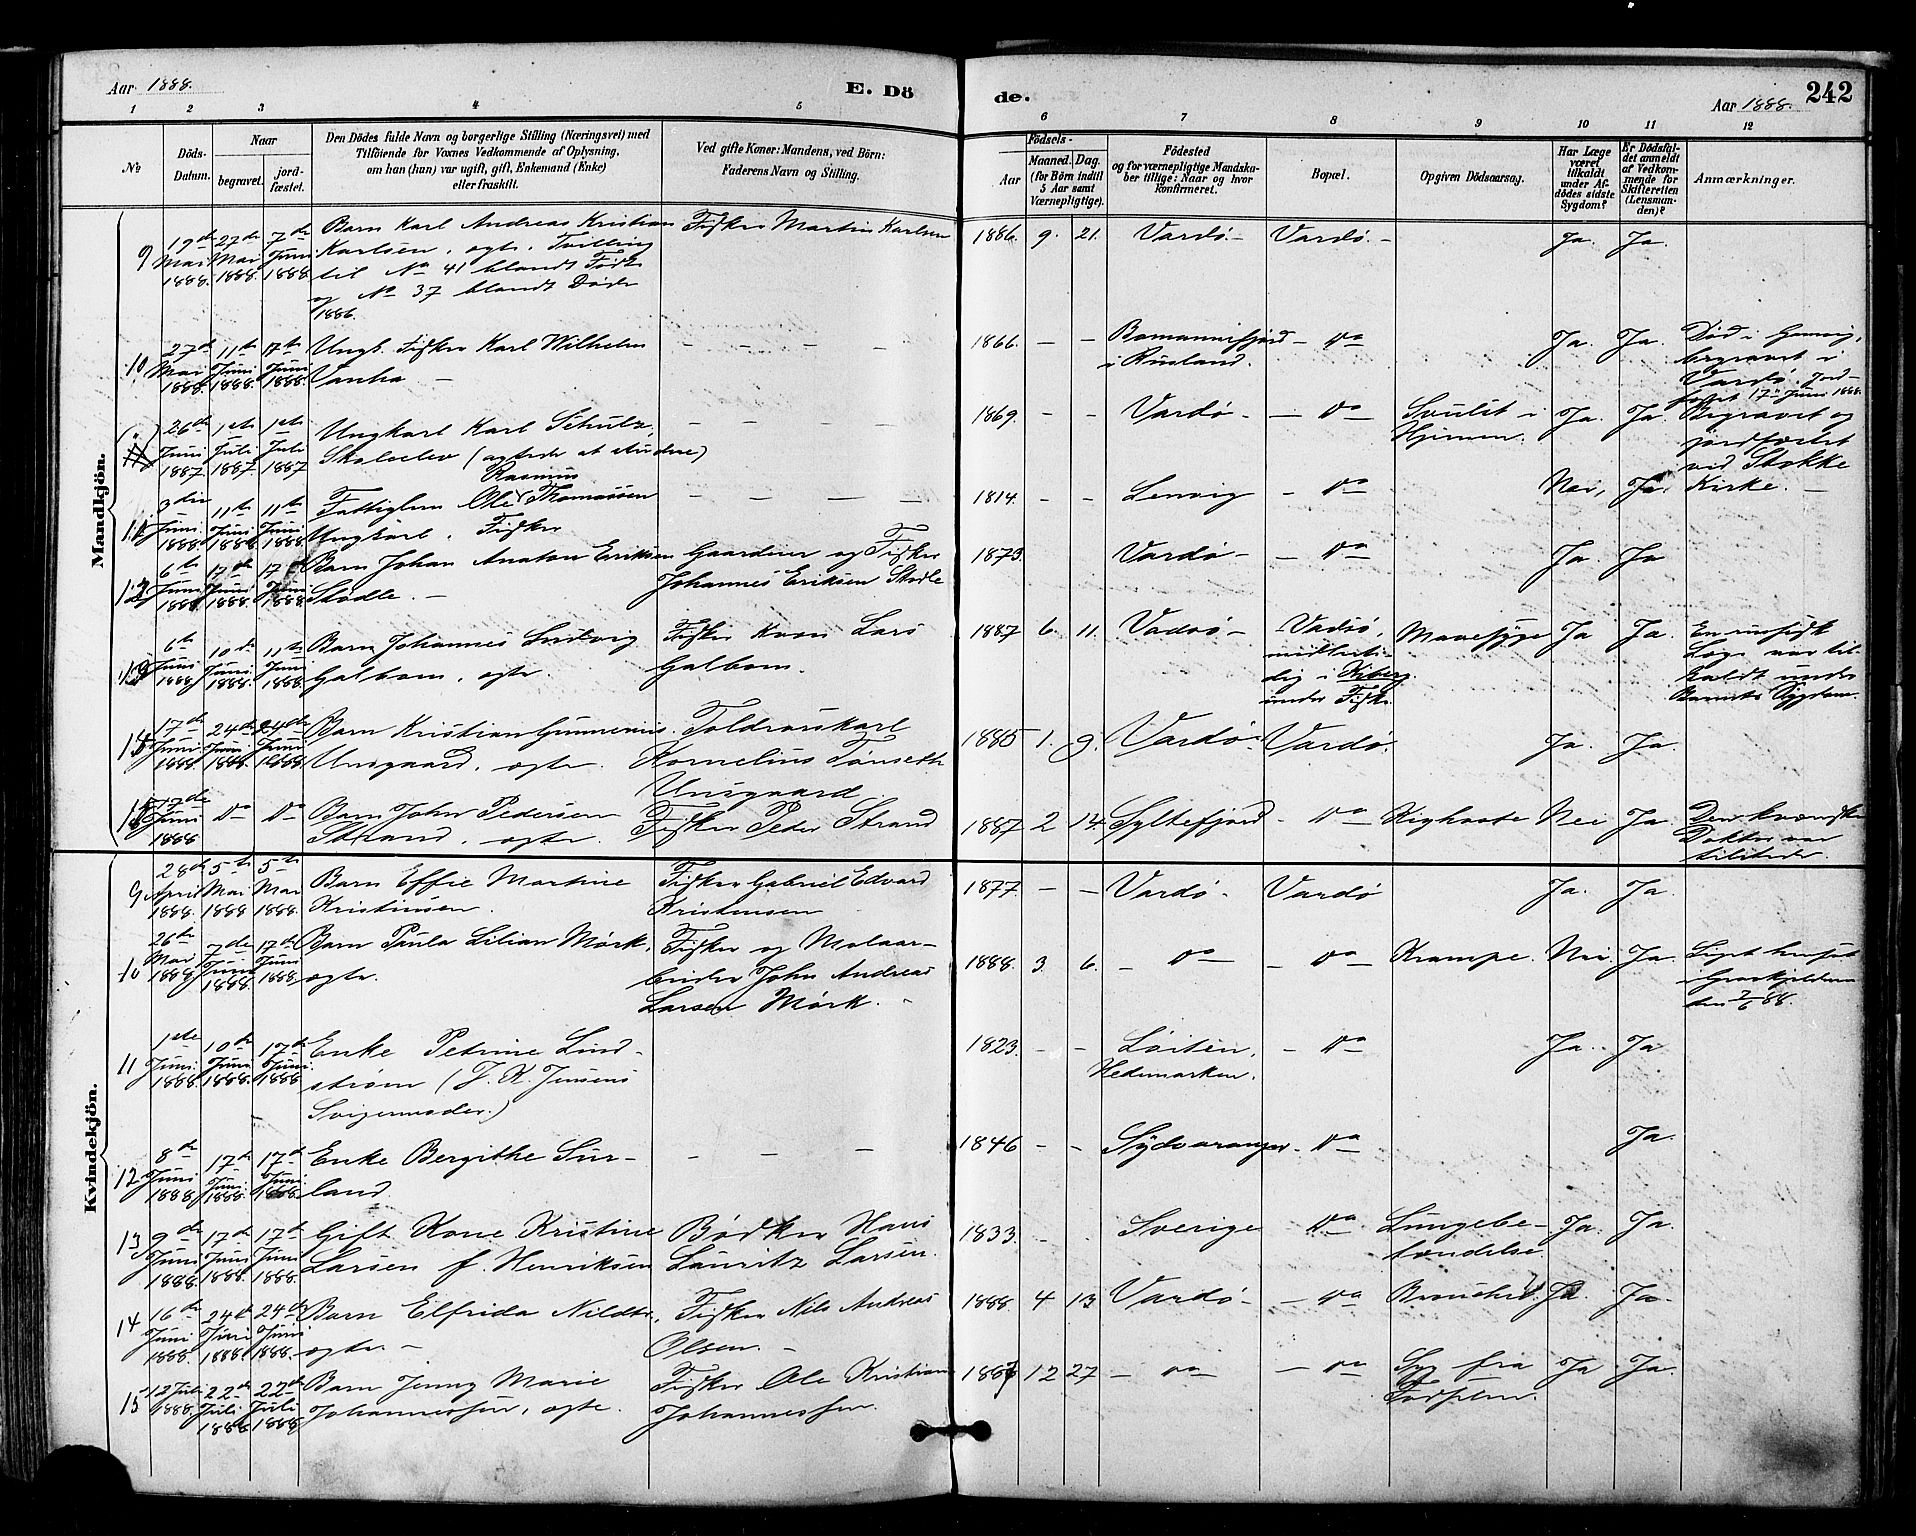 Aar 1888.
E. Dö
de.
Aar 1888.
242
1 2 3 4 5
6 7 8 9 10 11 12
No
Döds-
Datum.
Naar
begravet.
jord-
fæstet.
Den Dödes fulde Navn og borgerlige Stilling (Næringsvei) med
Tilföiende for Voxnes Vedkommende af Oplysning,
om han (hun) var ugift, gift, Enkemand (Enke)
eller fraskilt.
Ved gifte Koner: Mandens, ved Börn:
Faderens Navn og Stilling.
Födsels-
Aar
Maaned. Dag.
(for Börn indtil
5 Aar samt
Værnepligtige).
Födested
og for værnepligtige Mandska-
ber tillige: Naar og hvor
konfirmeret.
Bopæl.
Opgiven Dödsaarsag.
Har Læge
været
tilkaldt
under Af-
dödes sidste
Sygdom?
Er Dödsfal-
det anmeldt
af Vedkom-
mende for
Skifteretten
(Lensman-
den)?
Anmærkninger.
Mandkjön.
9 19de Mai 1888. 27de Mai 1888. 7de Juni 1888.
Barn Karl Andreas Kristian
Karlsen, ægte, Tvilling
til No 41 blandt Födte
og No 37 blandt Döde
1886.
Fisker Martin Karlsen
1886. 9. 21. Vardö.- Vardö.- Ja. Ja.
10 27de Mai 1888. 11te Juni 1888. 17te Juni 1888.
Ungk. Fisker Karl Wilhelm
Vanha —
1866. — — i Rusland. — Do Ja. Ja.
Död i Gamvig,
begravet i
Vardö. Jord-
fæstet 17de Juni 1888.
26de Juni 1887 1ste Juli 1887 1ste Juli 1887
Ungkarl Karl Schulz,
Skoleelev (agtede at studere)
1869. - - Vardö - — Do
Svulst i
Hjernen.
Ja. Ja.
Begravet og
jordfæstet
ved Stokke
Kirke. —
11 3die Juni 1888. 11te Juni 1888. 11te Juni 1888
Rasmus
Fattiglem Ole Thomassen
Ungkarl. Fisker
1814. - - Lenvig - Do Nei, Ja.
12 6te Juni 1888. 17de Juni 1888. 17 Juni 1888.
Barn Johan Anaton Eriksen
Skodle. —
Gaardener og Fisker
Johannes Eriksen Skodle
1873. Vardö - — Do Ja. Ja
13 6te Juni 1888 10de Juni 1888. 11te Juni 1888.
Barn Johannes Ludvig
Galbom, ægte.
Fisker Kven Lars
Galbom.
1887 6. 11. Vadsö -
Vadsö,
midlerti-
dig i Kiberg.
under Fiske.
Mavesyge Ja Ja.
En russisk
Læge var til-
kaldt under
Barnets Sygdom.
14 17de Juni 1888. 24de Juni 1888. 24de Juni 1888.
Barn Kristian Gunnerius
Unsgaard, ægte.
Toldrorskarl
Kornelius Tönseth
Unsgaard
1885 1. 9. Vardö. Vardö. Ja. Ja.
15 17de Juni 1888 Do Do
Barn John Pedersen
Strand, ægte.
Fisker Peder Strand
1887 2 14. Syltefjord - Do Kighoste Nei Ja.
Den kvænske
Doktor var
tilstede.
Kvindekjön.
9 28de April 1888. 5te Mai 1888 5te Mai 1888.
Barn Effie Martine
Kristensen.
Fisker Gabriel Edvard
Kristensen
1877 - - Vardö - Vardö Ja. Ja
10 26de Mai 1888. 7de Juni 1888. 17de Juni 1888
Barn Paula Lilian Mörk,
ægte.
Fisker og Malaar-
beider John Andreas
Larsen Mörk. -
1888. 3. 6. — Do — Do Krampe. Nei. Ja.
Liget hensat
i Gravkjelderen
den 7/6 88.
11 1ste Juni 1888. 10de Juni 1888. 17de Juni 1888
Enke Petrine Lind-
ström (J. K. Jensens
Svigermoder.)
1823. - - Löiten,
Hedemarken.
- Do Ja. Ja
12 8de Juni 1888. 17de Juni 1888. 17de Juni 1888.
Enke Bergithe Sur-
land.
1846 - - Sydvaranger. Do Ja.
13 9de Juni 1888. 17de Juni 1888. 17de Juni 1888.
Gift Kone Kristine
Larsen f. Henriksen
Bödker Hans
Lauritz Larsen.
1833. - - Sverige Do
Lungebe-
tændelse.
Ja. Ja.
14 16de Juni 1888. 24de Juni 1888. 24de Juni 1888.
Barn Elfrida
ægte. -
Fisker Nils Andreas
Olsen. -
1888. 4 13 Vardö - — Do Ja Ja.
15 12 Juli 1888. 22de Juli 1888 22de Juli 1888
Barn Jenny Marie
Johannessen, ægte.
Fisker Ole Kristian
Johannessen.
1887 12 27 — Do — Do
Syg fra
Födselen.
Ja Ja.